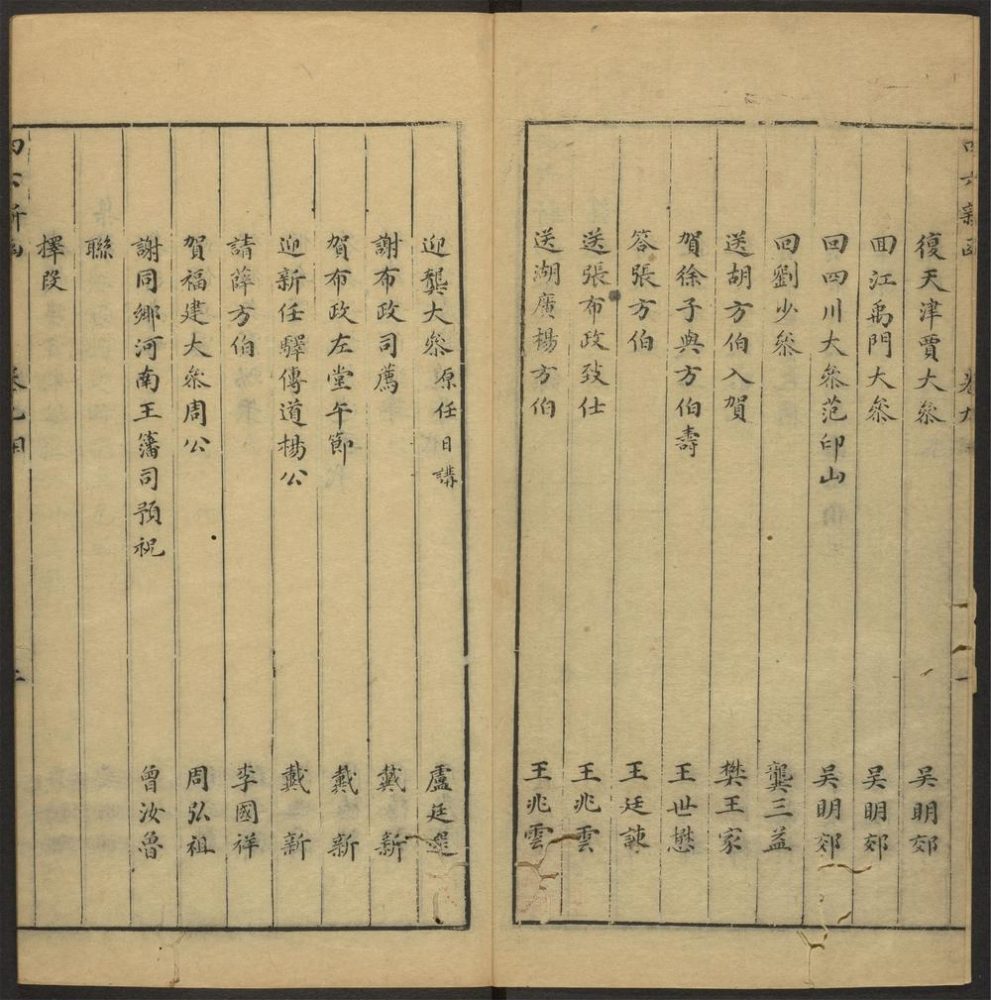 四六新函 卷九
復天津賈大叅 吳明郊
回江禹門大叅 吳明郊
回四川大叅范印山 吳明郊
回劉少叅 龔三益
送胡方伯入賀 樊王家
賀徐子與方伯壽 王世懋
答張方伯 王廷諫
送張布政致仕 王兆雲
送湖廣楊方伯 王兆雲
迎龔大叅原任日講 盧廷選
謝布政司薦 戴新
賀布政左堂午節 戴新
迎新任驛傳道楊公 戴新
請薛方伯 李國祥
賀福建大叅周公 周弘祖
謝同鄉河南王籓司預祝 曾汝魯
聯
擇段
四六新函 卷九目 二